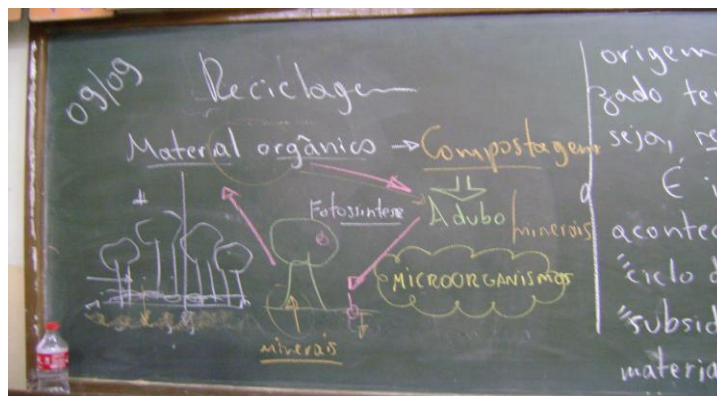 09/09
Reciclagem
Material orgânico → Compostagem
Fotossíntese
Adubo/minerais
MICROORGANISMOS
minerais
origem
zado
seja,
É
acontec
"ciclo d
"subsid
materia